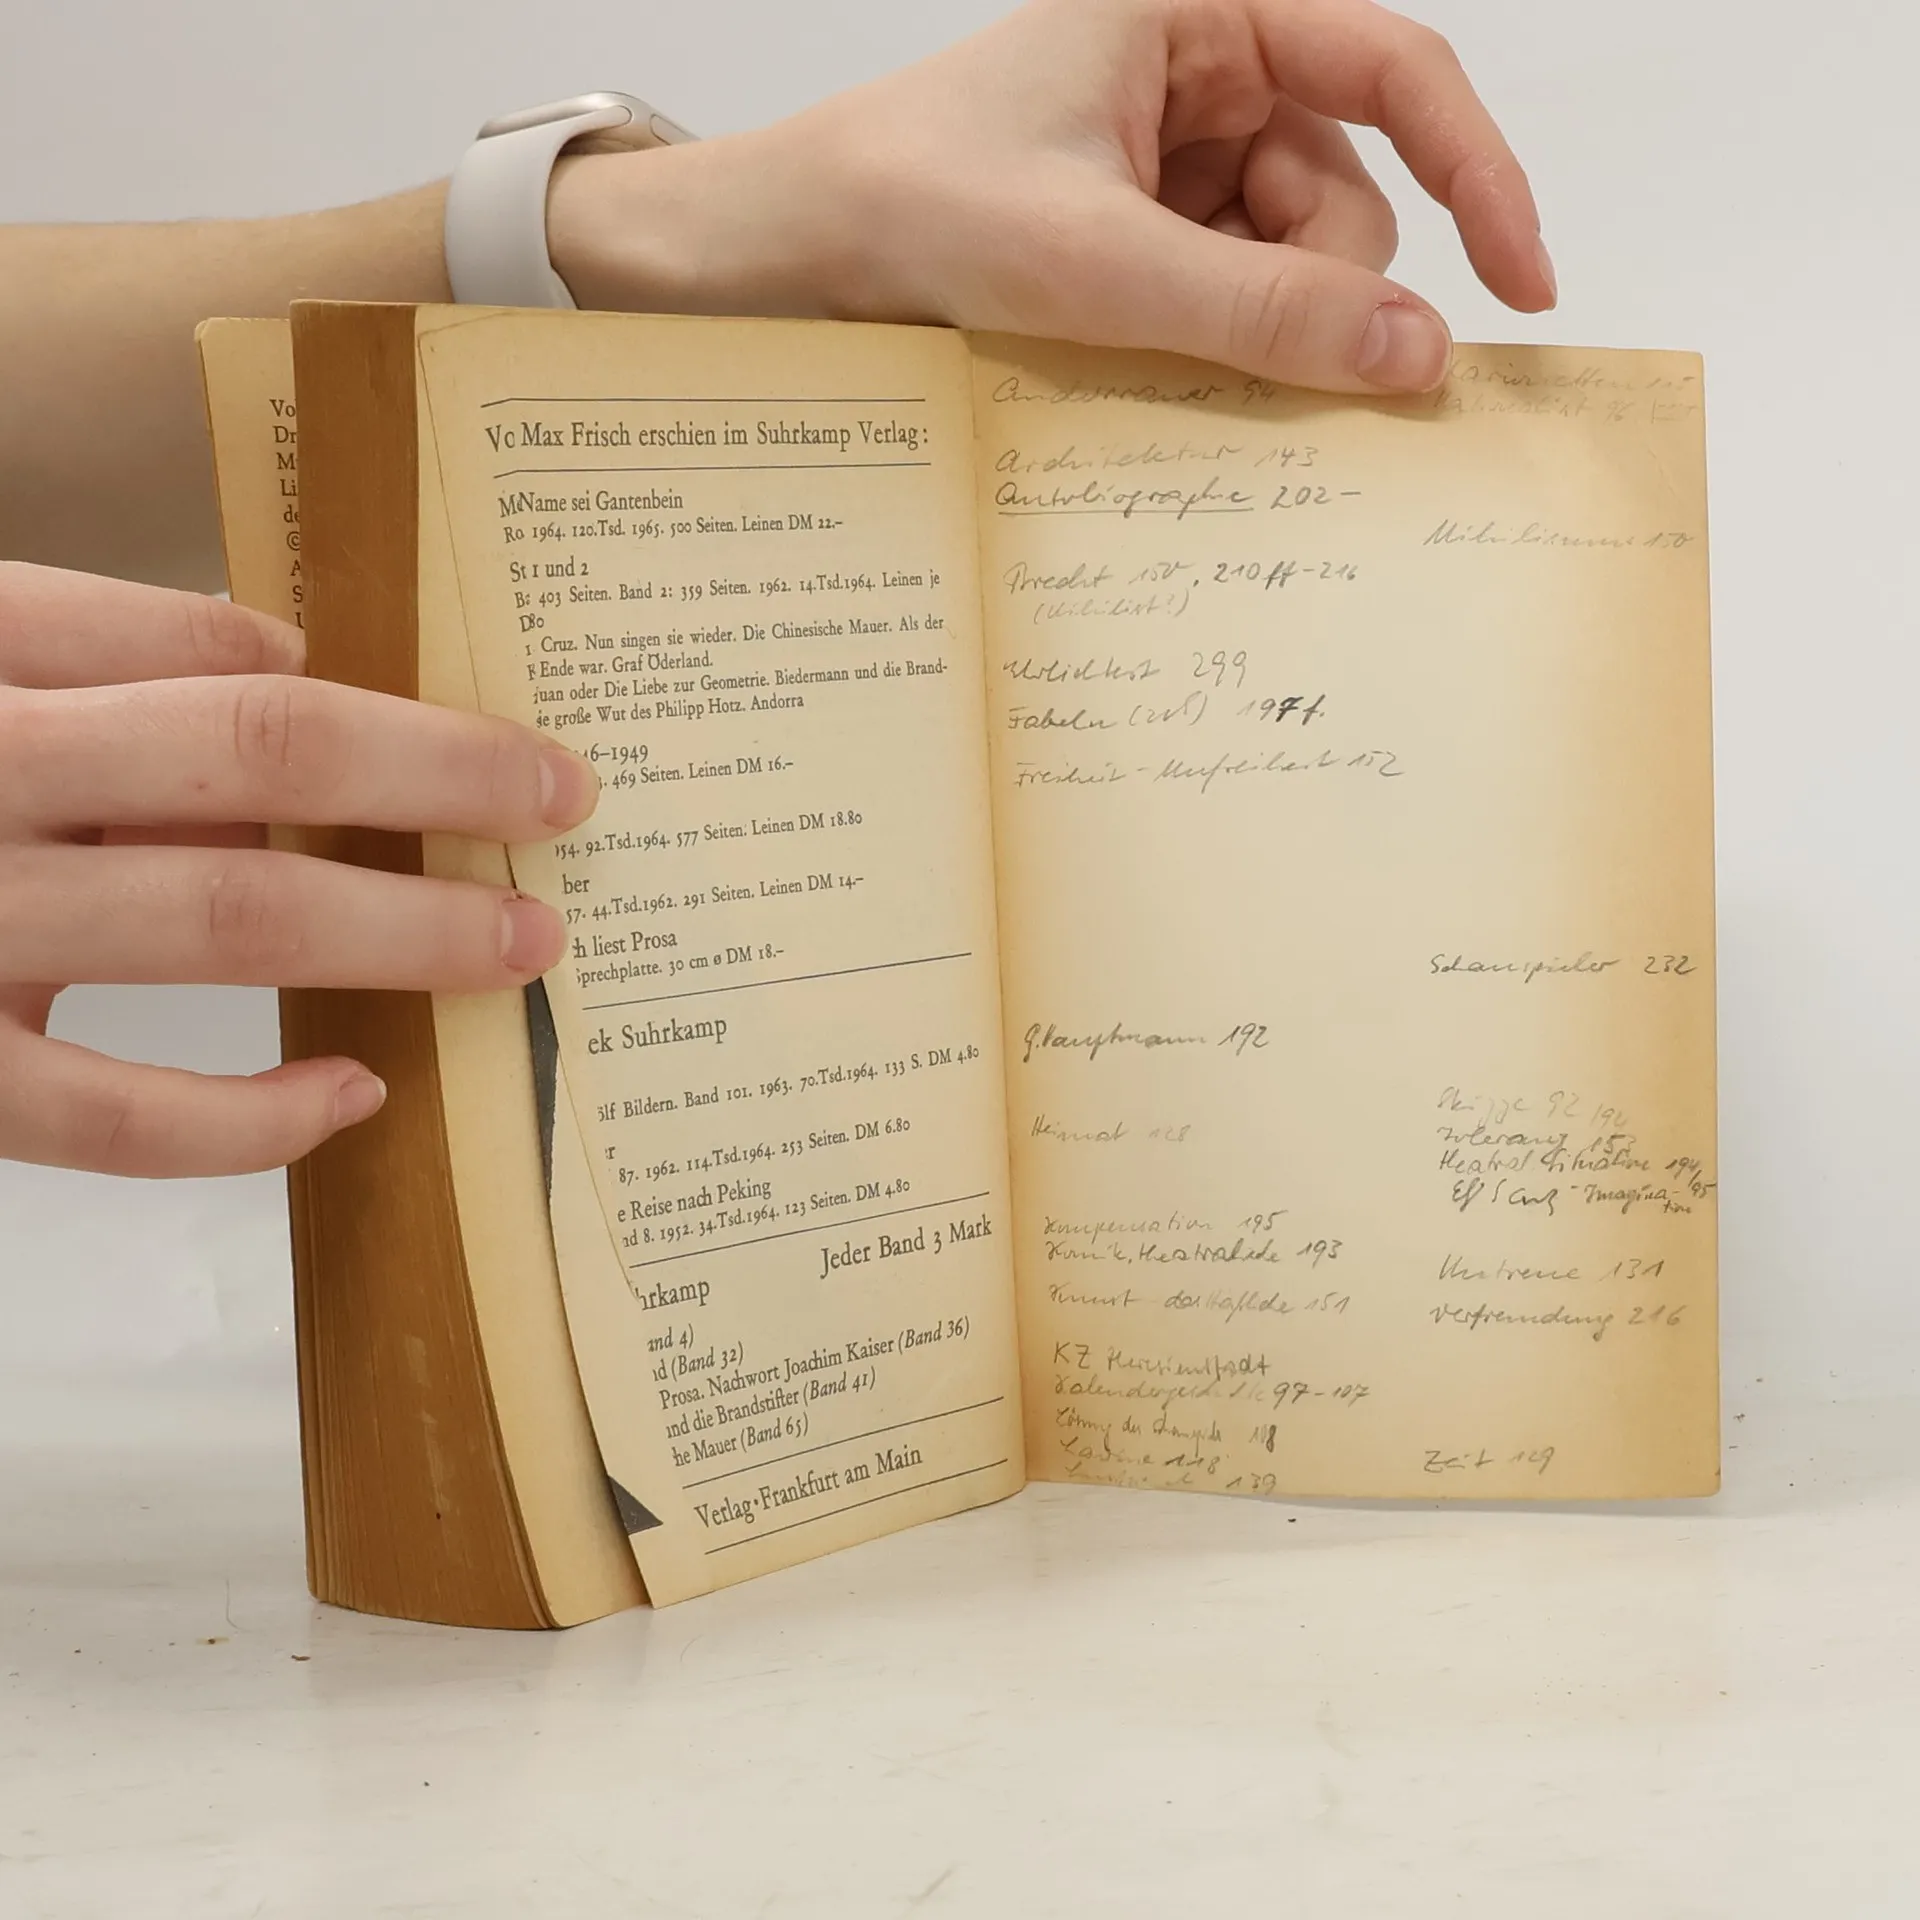 Vo
Dr
M
Li
de
©
A
S
U
Vo Max Frisch erschien im Suhrkamp Verlag:
Name sei Gantenbein
Ro 1964. 120.Tsd. 1965. 500 Seiten. Leinen DM 22.–
St 1 und 2
403 Seiten. Band 2: 359 Seiten. 1962. 14.Tsd.1964. Leinen je
80
Cruz. Nun singen sie wieder. Die Chinesische Mauer. Als der
Ende war. Graf Öderland.
Juan oder Die Liebe zur Geometrie. Biedermann und die Brand-
ie große Wut des Philipp Hotz. Andorra
46–1949
469 Seiten. Leinen DM 16.–
54. 92.Tsd.1964. 577 Seiten. Leinen DM 18.80
ber
57. 44.Tsd.1962. 291 Seiten. Leinen DM 14.–
ch liest Prosa
Sprechplatte. 30 cm ø DM 18.–
ek Suhrkamp
ölf Bildern. Band 101. 1963. 70.Tsd.1964. 133 S. DM 4.80
er
87. 1962. 114.Tsd.1964. 253 Seiten. DM 6.80
e Reise nach Peking
nd 8. 1952. 34.Tsd.1964. 123 Seiten. DM 4.80
Jeder Band 3 Mark
hrkamp
and 4)
d (Band 32)
Prosa. Nachwort Joachim Kaiser (Band 36)
und die Brandstifter (Band 41)
he Mauer (Band 65)
Verlag · Frankfurt am Main
Andorraner 94
Architektur 143
Autobiographie 202 –
Brecht 150, 210 ff – 216
(Nihilist?)
Ehrlichkeit 299
Fabeln 197 f.
Freiheit – Unfreiheit 152
G. Hauptmann 192
Heimat 128
Kompensation 195
Komik, theatralische 193
Kunst 151
KZ Theresienstadt
97 – 107
108
Lawine 118
139
Marionetten 115
96
Nihilismus 150
Schauspieler 232
Skizze 92 194
Toleranz 153
theatral. Situation 194/95
Imagina-
tion
Untreue 131
Verfremdung 216
Zeit 129